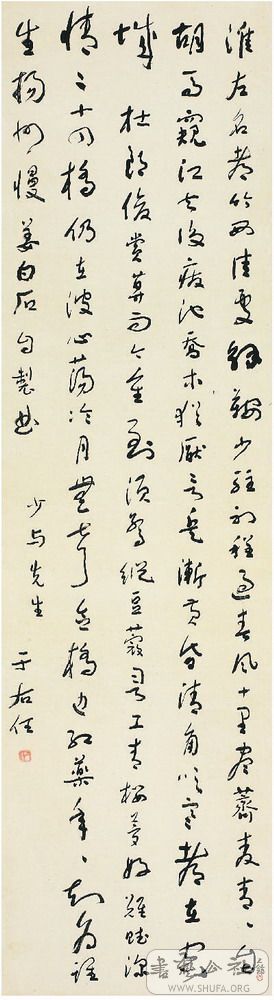 淮左名都竹西佳處解鞍少駐初程過春風十里盡薺麥青々自
胡馬窺江去後廢池喬木猶厭言兵漸黃昏清角吹寒都在空
城 杜郎俊賞算而今重到須驚縱豆蔻詞工青樓夢好難賦深
情二十四橋仍在波心蕩冷月無聲念橋邊紅藥年々知為誰
生揚州慢姜白石自製曲
少与先生
于右任
WWW.SHUFA.ORG